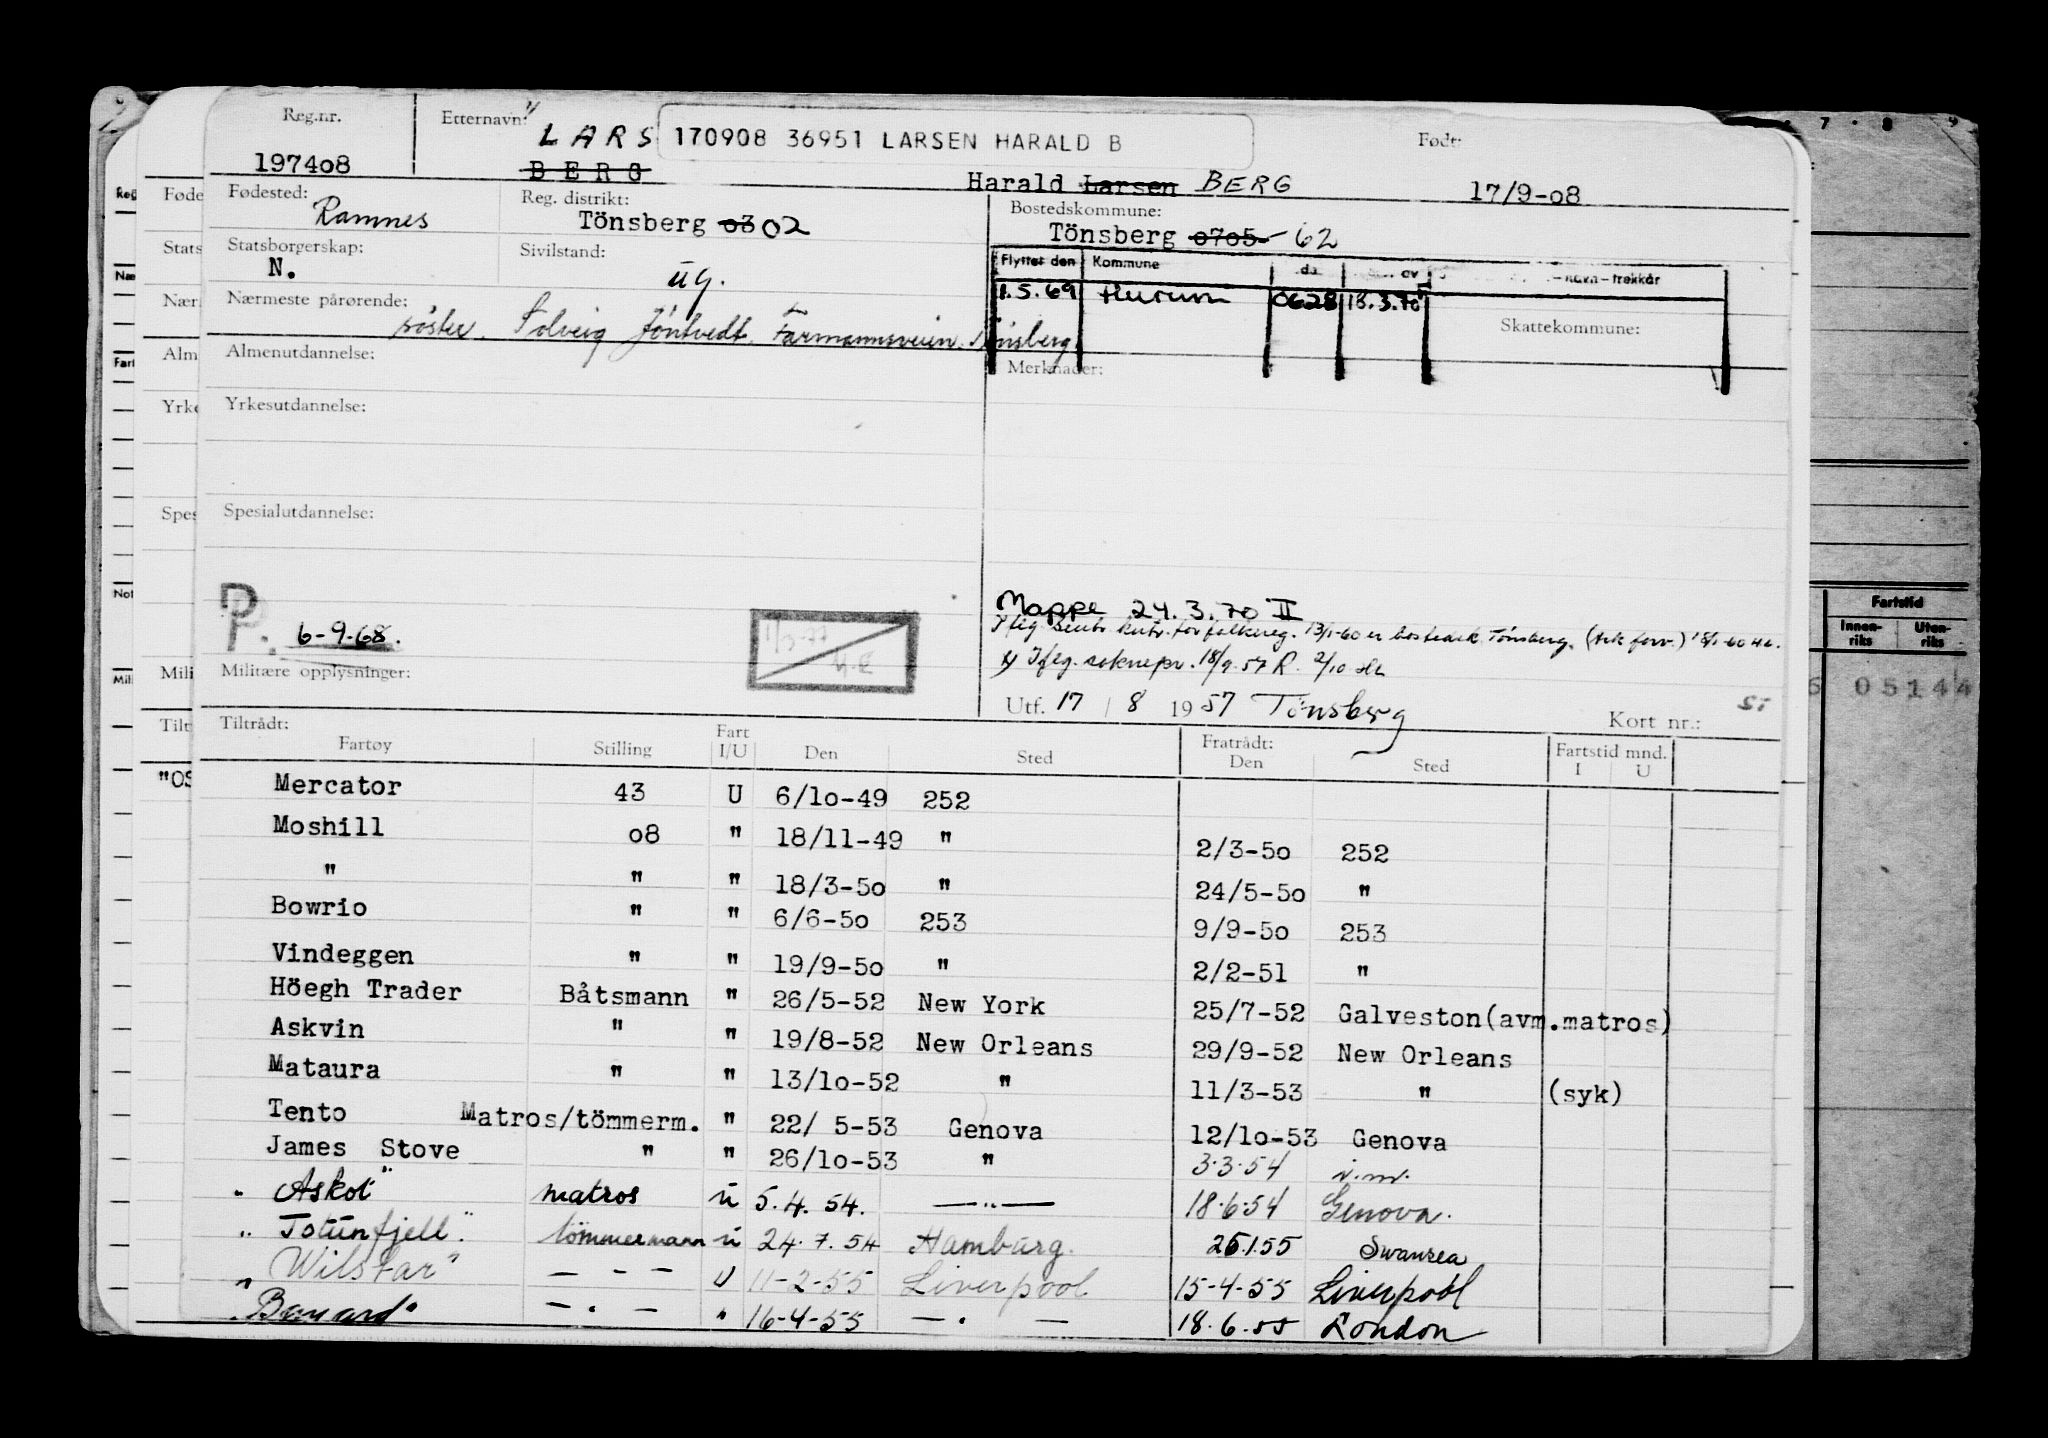 Reg.nr.
197408
Etternavn:
LARS
BERG
170908 36951 LARSEN HARALD B
Født:
Harald Larsen BERG
17/9-08
Fødested:
Ramnes
Reg. distrikt:
Tönsberg 03 02
Bostedskommune:
Tönsberg 0705 - 62
Statsborgerskap:
N.
Sivilstand:
ug.
Flyttet den Kommune
-navn-trekkår
1.5.69 Hurum 0628 18.3.70
Nærmeste pårørende:
söster. Solveig Jöntvedt. Farmannsveien. Tönsberg.
Skattekommune:
Almenutdannelse:
Merknader:
Yrkesutdannelse:
Spesialutdannelse:
P. 6-9-68.
Mappe 24.3.70 II
Iflg. Sentr. kntr. for folkereg. 13/1-60 er bostedsk Tönsberg.
x) Ifлg. soknepr. 18/9.57 R. 2/10
Militære opplysninger:
Utf. 17 / 8 1957 Tönsberg
Kort nr.:
Tiltrådt: Fratrådt:
Fartøy Stilling Fart I/U Den Sted Den Sted Fartstid mnd. I U
Mercator 43 U 6/10-49 252
Moshill 08 " 18/11-49 " 2/3-50 252
" " " 18/3-50 " 24/5-50 "
Bowrio " " 6/6-50 253 9/9-50 253
Vindeggen " " 19/9-50 " 2/2-51 "
Höegh Trader Båtsmann " 26/5-52 New York 25/7-52 Galveston(avm.matros)
Askvin " " 19/8-52 New Orleans 29/9-52 New Orleans
Mataura " " 13/10-52 " 11/3-53 " (syk)
Tento Matros/tömmerm. " 22/ 5-53 Genova 12/10-53 Genova
James Stove " " 26/10-53 " 3.3.54
"Askot" matros u 5.4.54. — " — 18.6.54 Genova.
"Jotunfjell" tömmermann u 24.7.54 Hamburg. 25.1.55 Swansea
"Wilstar" — - — U 11-2-55 Liverpool 15-4-55 Liverpool
"Banard" — . — " 16-4-55 — . — 18.6.55 London
Fartstid
Innen-riks Uten-riks
05144